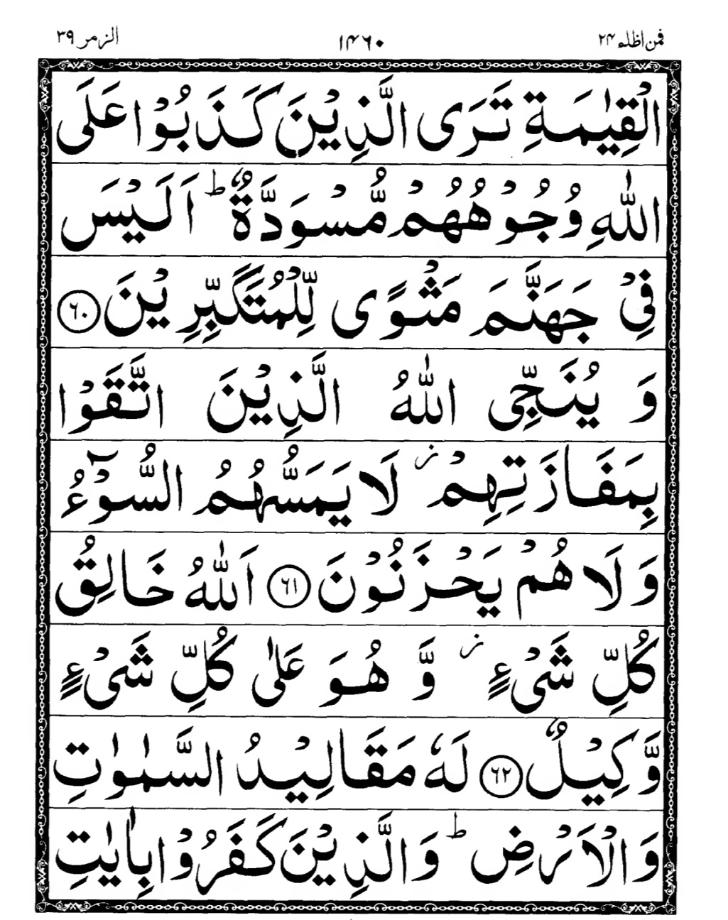 فمن اظلم ۲۴ ۱۴۶۰ الزمر ۳۹
الْقِیٰمَةِ تَرَی الَّذِیْنَ کَذَبُوْا عَلَی
اللّٰهِ وُجُوْهُهُمْ مُّسْوَدَّةٌ ؕ اَلَیْسَ
فِیْ جَهَنَّمَ مَثْوًی لِّلْمُتَکَبِّرِیْنَ ﴿۶۰﴾
وَ یُنَجِّی اللّٰهُ الَّذِیْنَ اتَّقَوْا
بِمَفَازَتِهِمْ ؗ لَا یَمَسُّهُمُ السُّوْٓءُ
وَلَا هُمْ یَحْزَنُوْنَ ﴿۶۱﴾ اَللّٰهُ خَالِقُ
کُلِّ شَیْءٍ ؗ وَّ هُوَ عَلٰی کُلِّ شَیْءٍ
وَّکِیْلٌ ﴿۶۲﴾ لَهٗ مَقَالِیْدُ السَّمٰوٰتِ
وَالْاَرْضِ ؕ وَالَّذِیْنَ کَفَرُوْا بِاٰیٰتِ